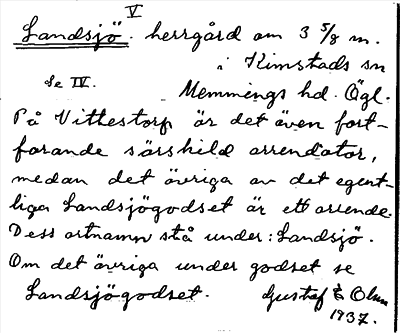 V
Landsjö. herrgård om 3 5/8 m.
i Kimstads sn
Se IV. Memmings hd. Ögl.
På Vittestorp är det även fort-
farande särskild arrendator,
medan det övriga av det egent-
liga Landsjögodset är ett arrende.
Dess ortnamn stå under: Landsjö.
Om det övriga under godset se
Landsjögodset. Gustaf E Olsson
1937.